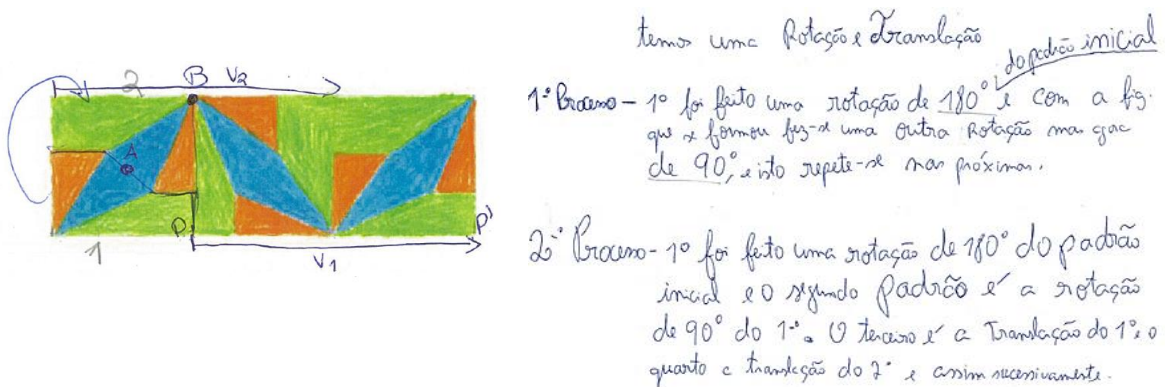 2 B V2
A
P P'
1 V1
temos uma Rotação e Translação
do padrão inicial
1º Processo - 1º foi feito uma rotação de 180º e com a fig.
que se formou fez-se uma outra Rotação mas
de 90º, e isto repete-se nas próximas.
2º Processo - 1º foi feito uma rotação de 180º do padrão
inicial e o segundo Padrão é a rotação
de 90º do 1º. O terceiro é a Translação do 1º, o
quarto a translação do 2º e assim sucessivamente.